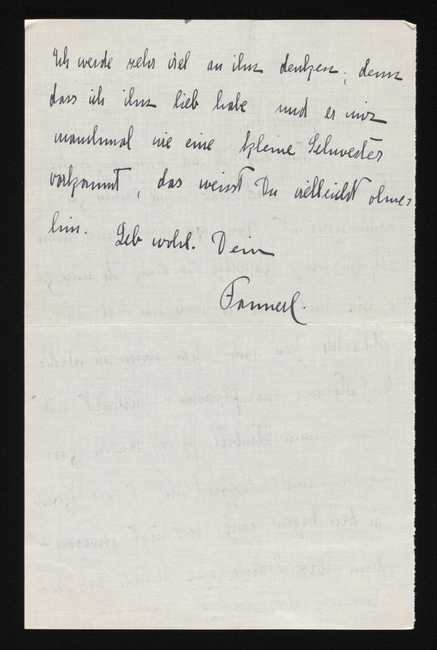 Ich werde sehr viel an ihn denken, denn
dass ich ihn lieb habe und er mir
manchmal wie eine kleine Schwester
vorkommt, das weisst Du vielleicht ohne-
hin. Leb wohl. Dein
Fannerl.